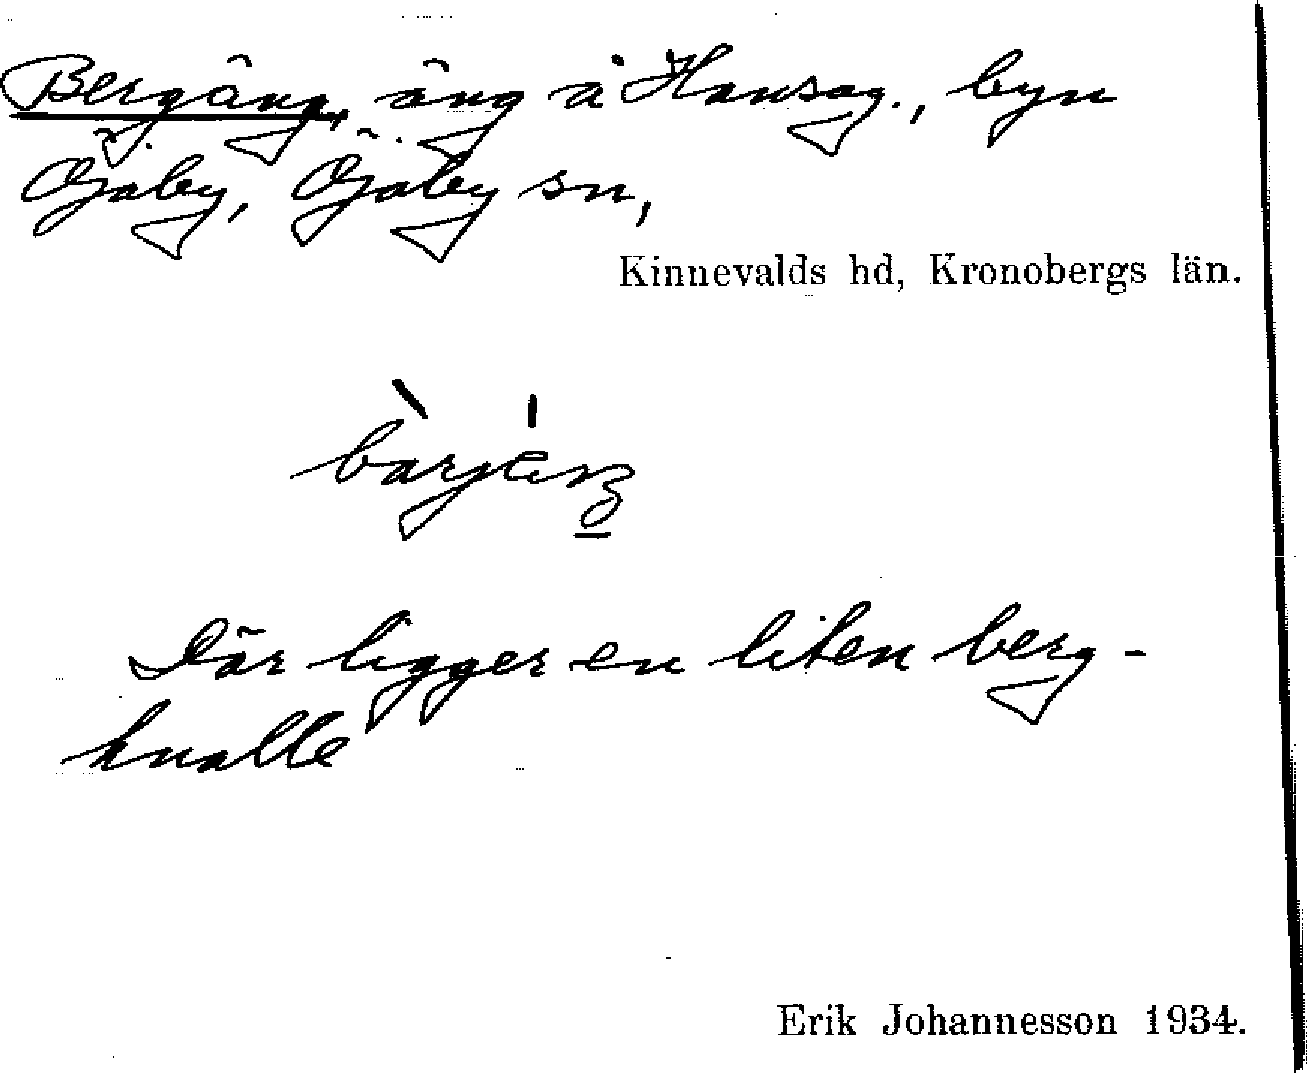 Bergäng, äng å Hansag., byn
Öjaby, Öjaby sn,
Kinnevalds hd, Kronobergs län.
Där ligger en liten berg-
knalle
Erik Johannesson 1934.